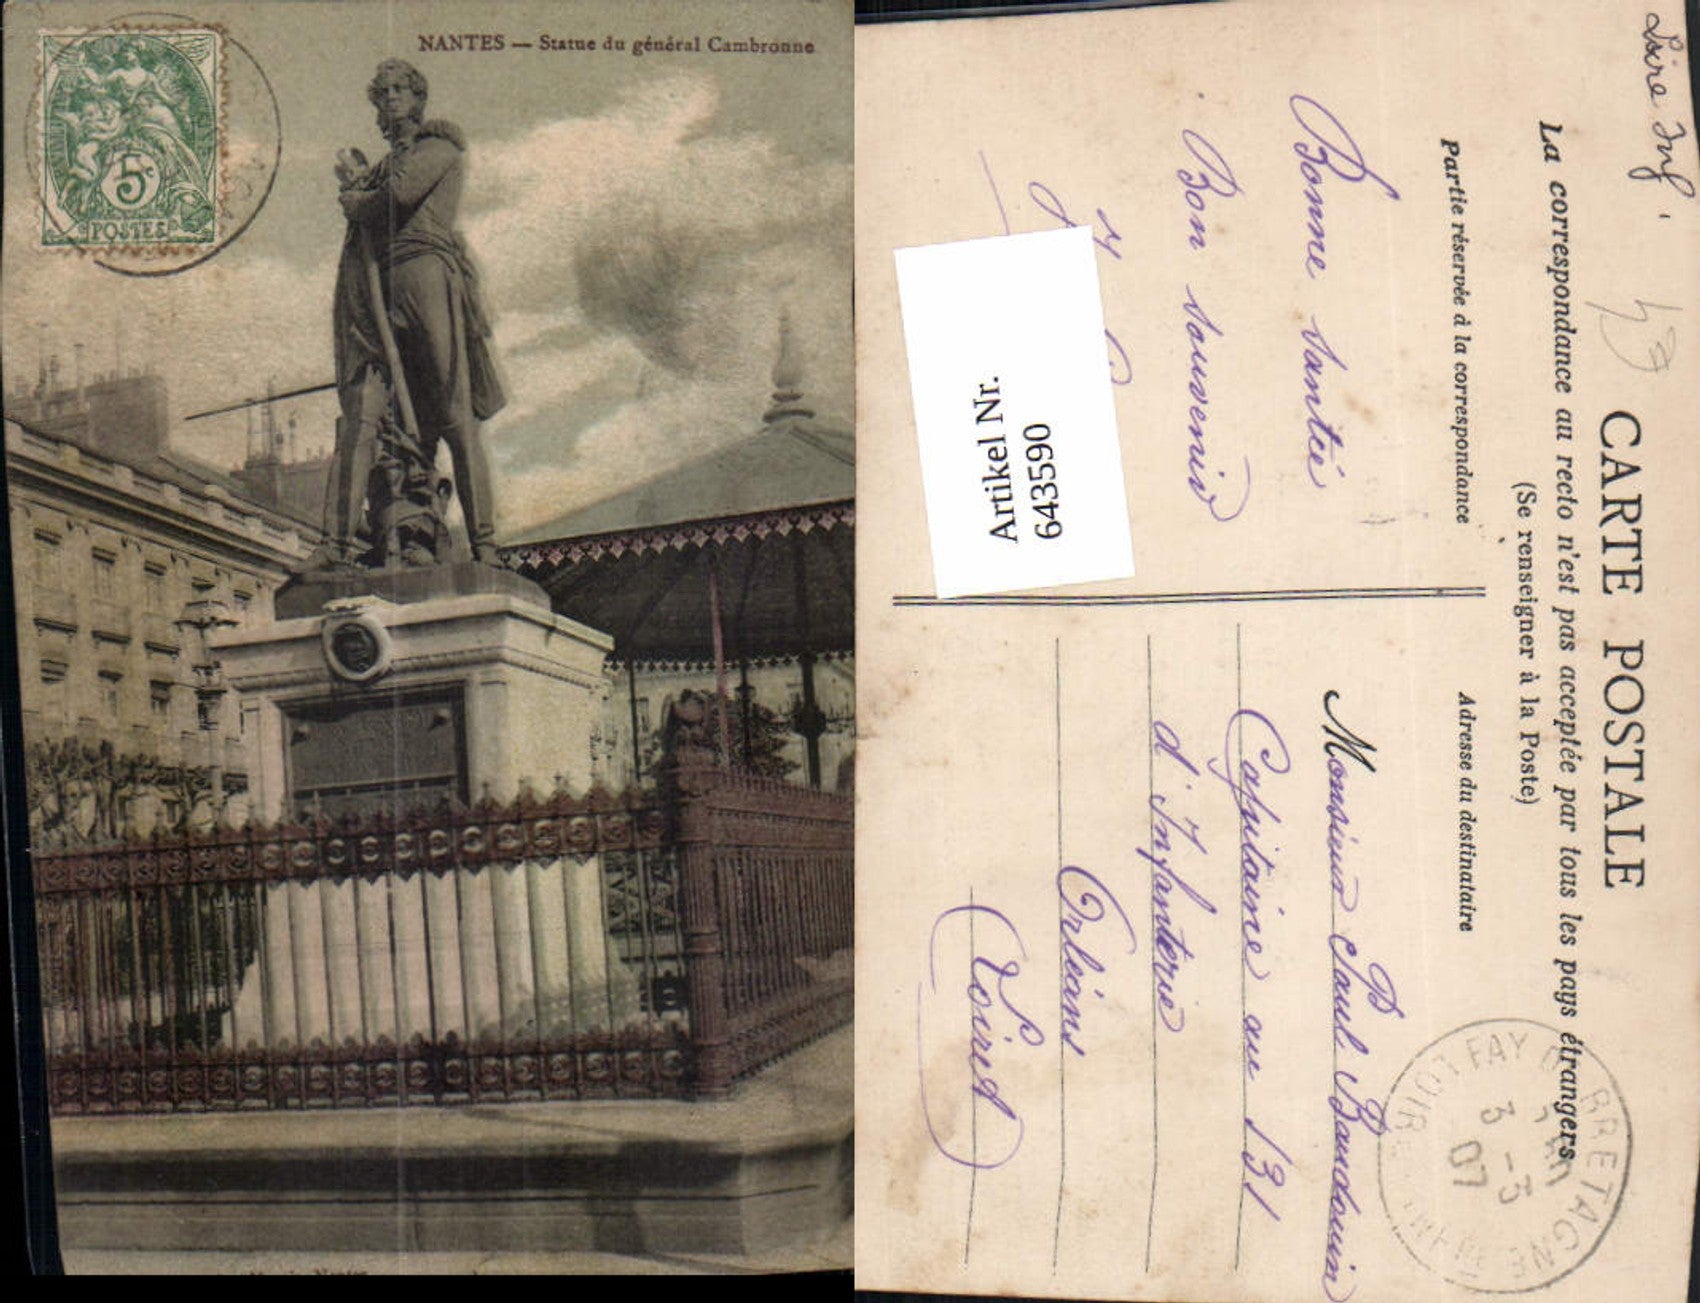 NANTES — Statue du général Cambronne
5c
POSTES
Loire Inf.
CARTE POSTALE
La correspondance au recto n'est pas acceptée par tous les pays étrangers
(Se renseigner à la Poste)
Partie réservée à la correspondance
Bonne santé
Bon souvenir
Artikel Nr.
643590
Adresse du destinataire
Monsieur Paul Baudouin
Capitaine au 131
d'Infanterie
Orléans
(Loiret)
FAY BRETAGNE
3 -3
07